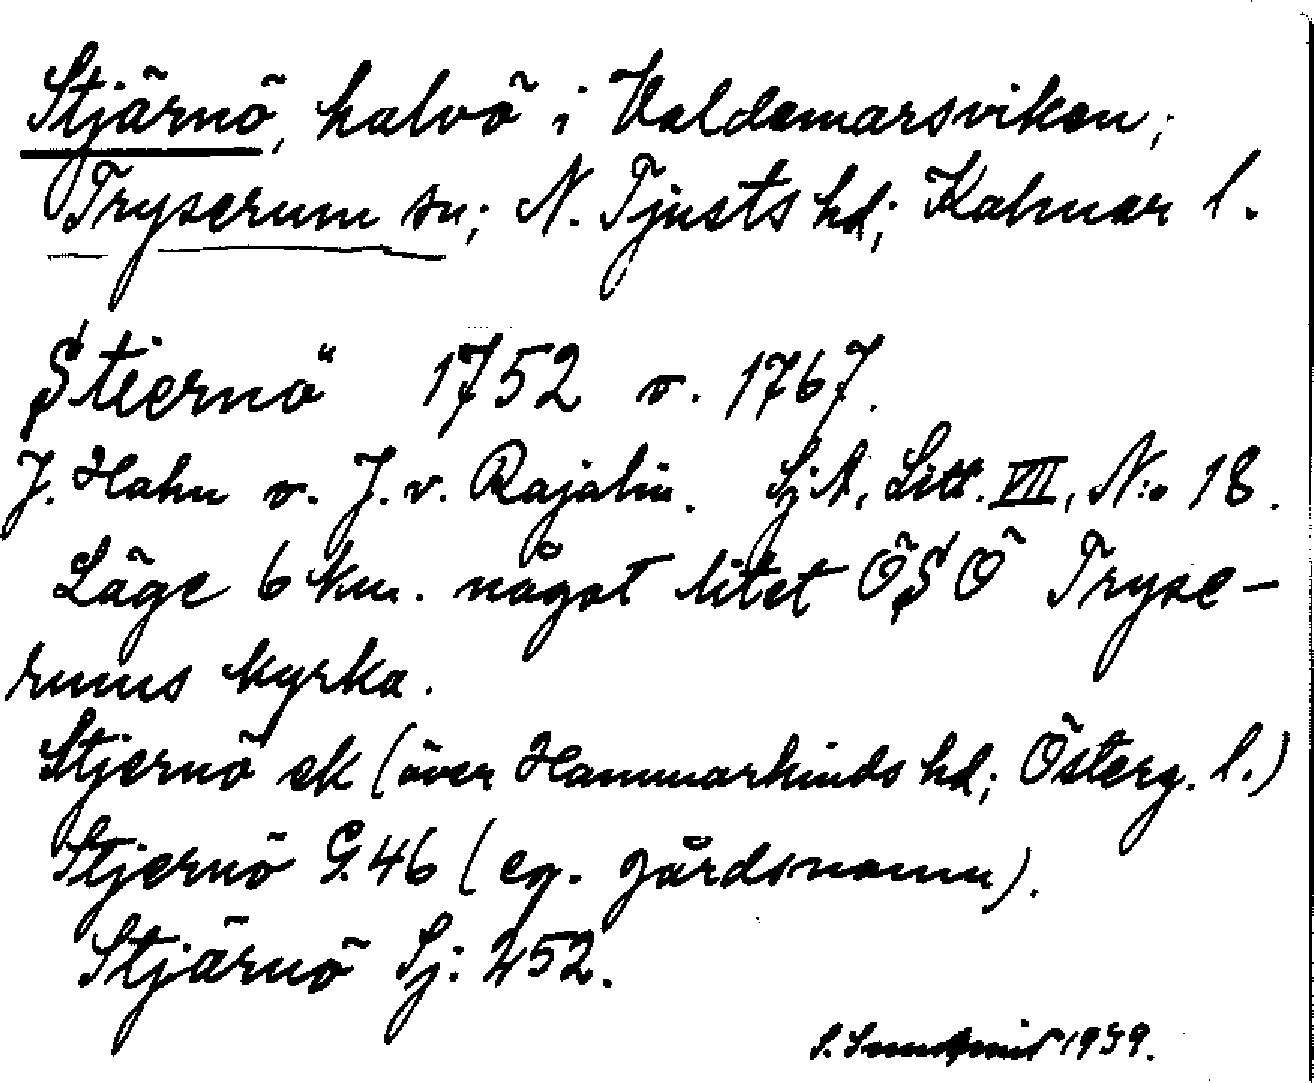 Stjärnö, halvö i Valdemarsviken;
Tryserum sn; N. Tjusts hd; Kalmar l.
Stiernö 1752 o. 1767.
J. Hahn o. J. v. Rajalin. SjA, Litt. VII, N:o 18.
Läge 6 km. något litet ÖSÖ Tryse-
rums kyrka.
Stjernö ek (över Hammarkinds hd; Österg. l.)
Stjernö G.46 (eg. gårdsnamn).
Stjärnö Sj: 252.
1939.